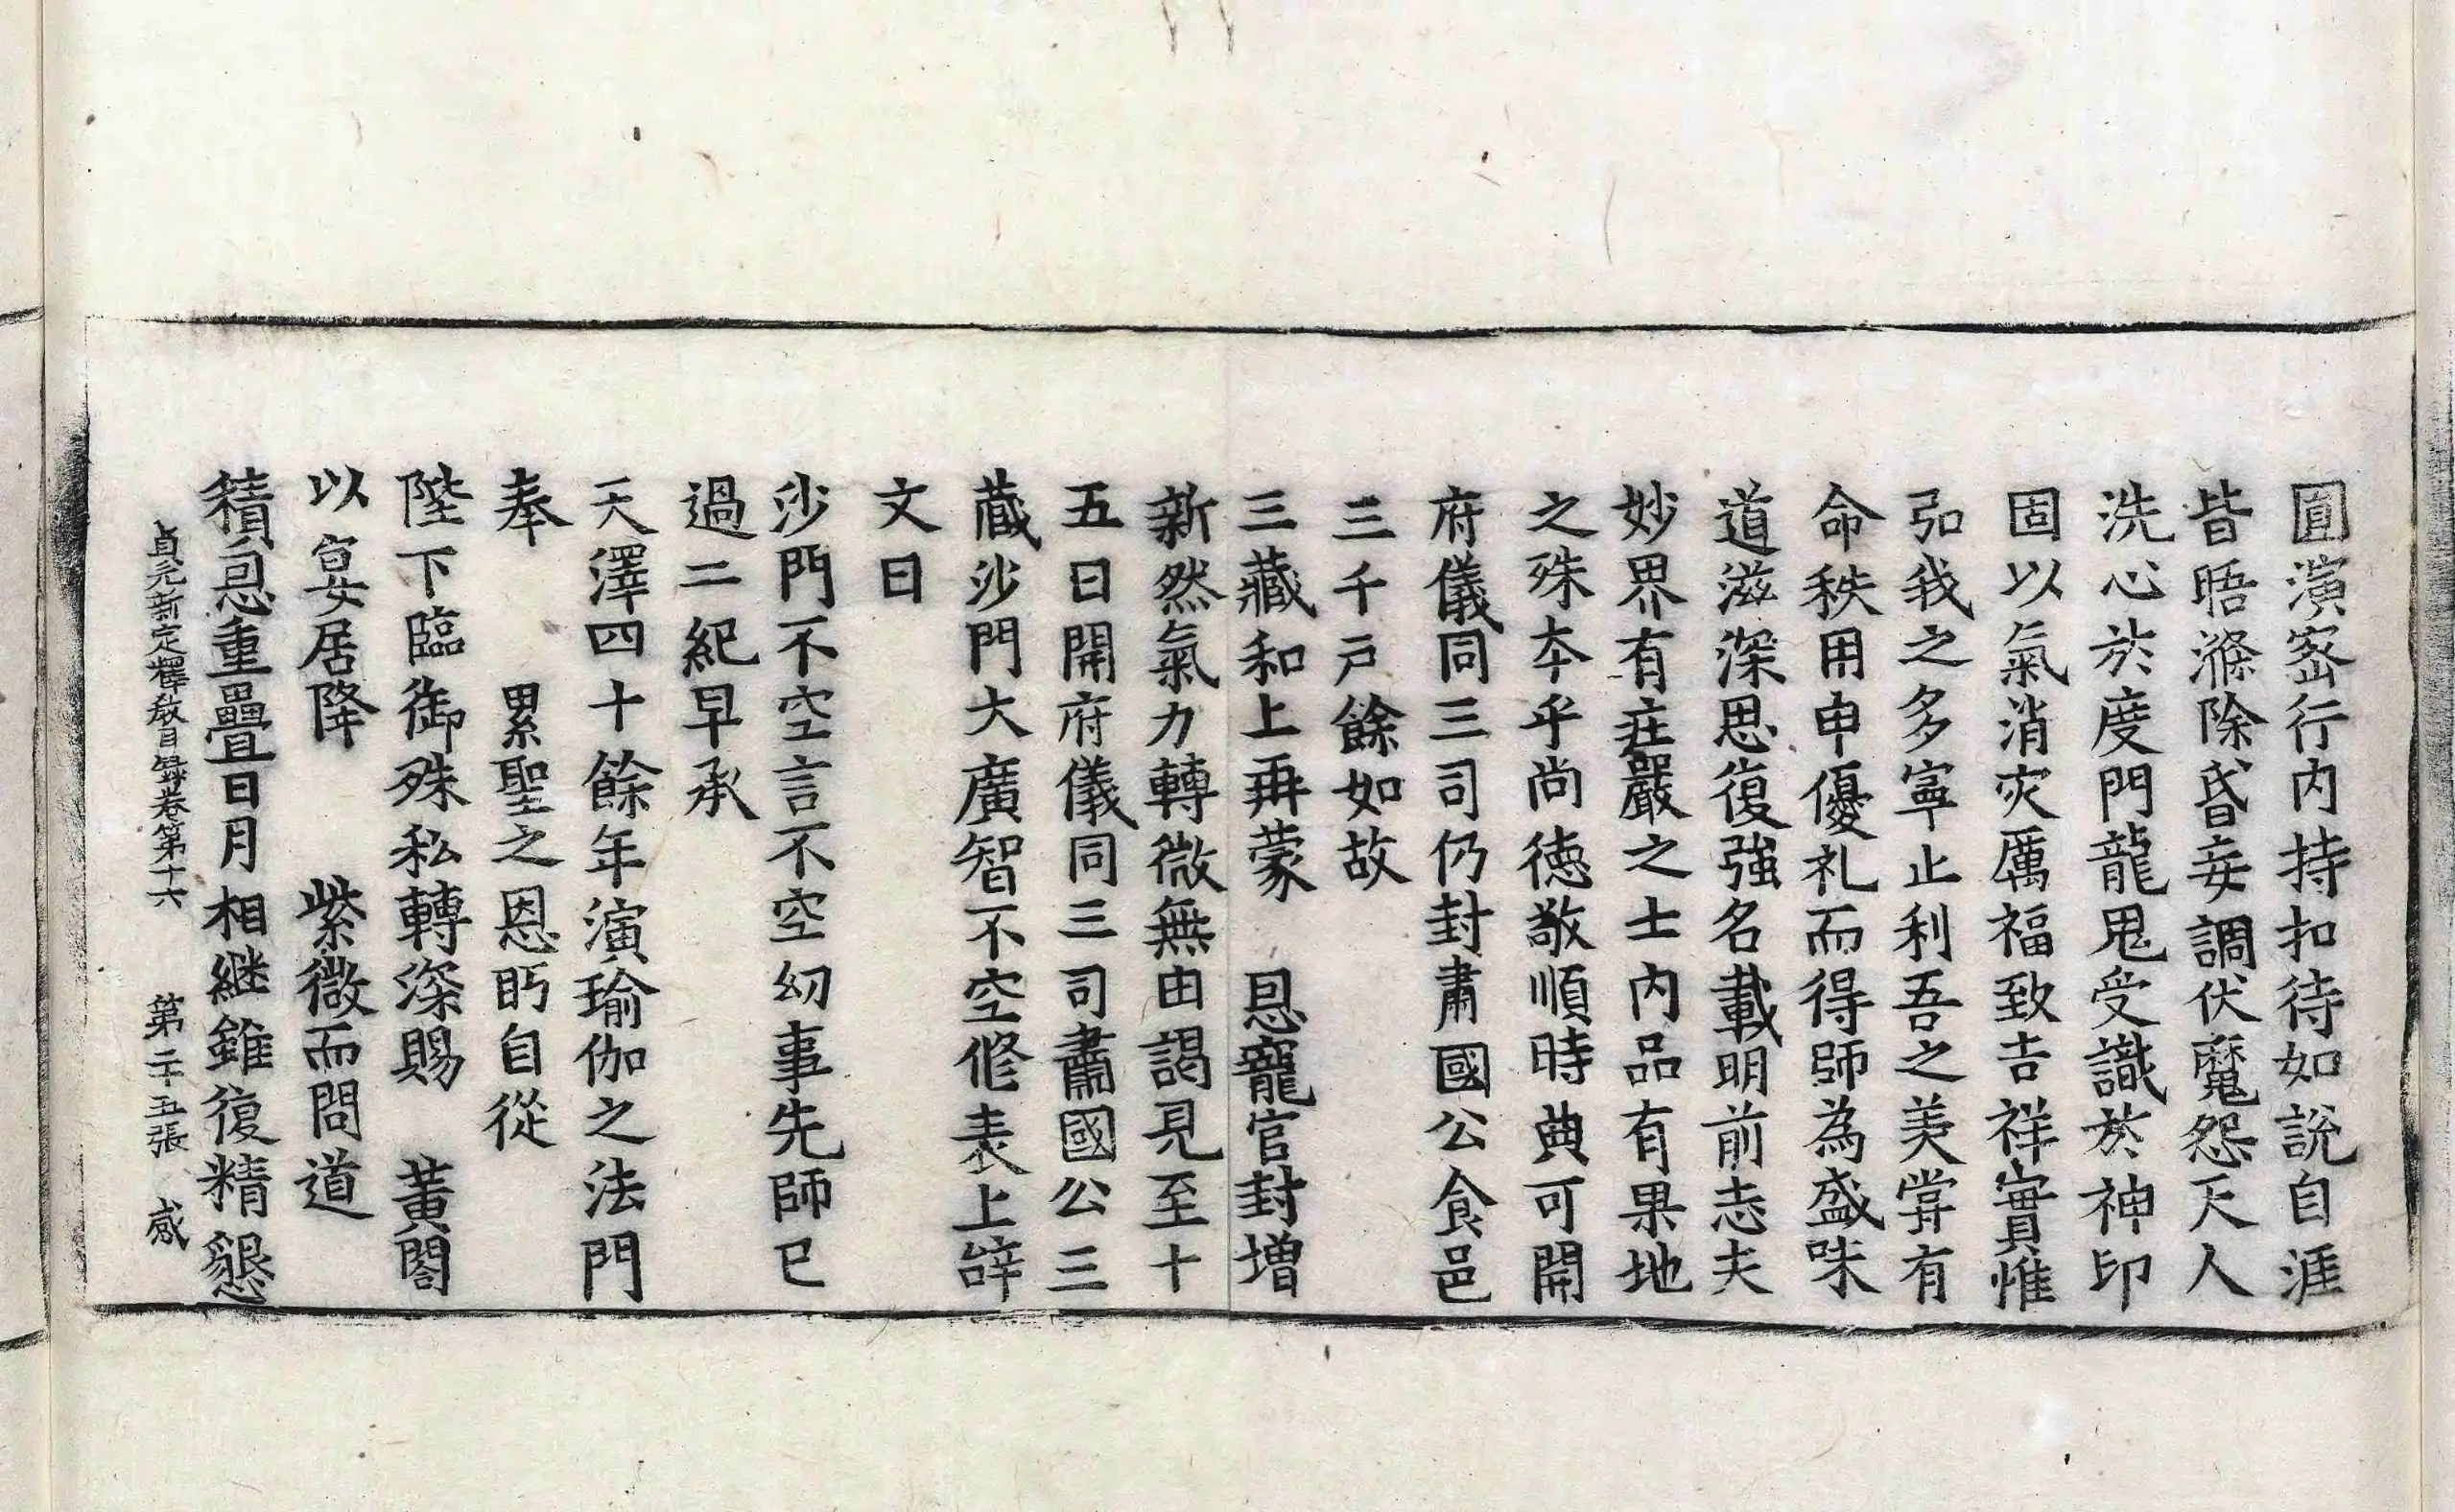 圎演宻行内持扣待如說自涯
皆晤滌除昏妄調伏魔怨天人
洗心於度門龍鬼受識於神印
固以氣消灾厲福致吉祥實惟
弘我之多寧止利吾之美甞有
命秩用申優礼而得師為盛味
道滋深思復強名載明前志夫
妙界有莊嚴之士内品有果地
之殊本乎尚德敬順時典可開
府儀同三司仍封肅國公食邑
三千戸餘如故
三藏和上再蒙　恩寵官封增
新然氣力轉微無由謁見至十
五日開府儀同三司肅國公三
藏沙門大廣智不空俻表上辝
文曰
沙門不空言不空幻事先師已
過二紀早承
天澤四十餘年演瑜伽之法門
奉　累聖之恩眄自從
陛下臨御殊私轉深賜　黄閣
以宴居降　紫微而問道
積恩重疊日月相継雖復精懇
貞元新定釋教目錄卷第十六　第二十五張　感